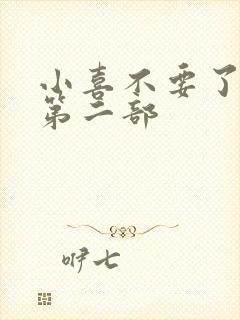 小喜不要了
第二部
咿七